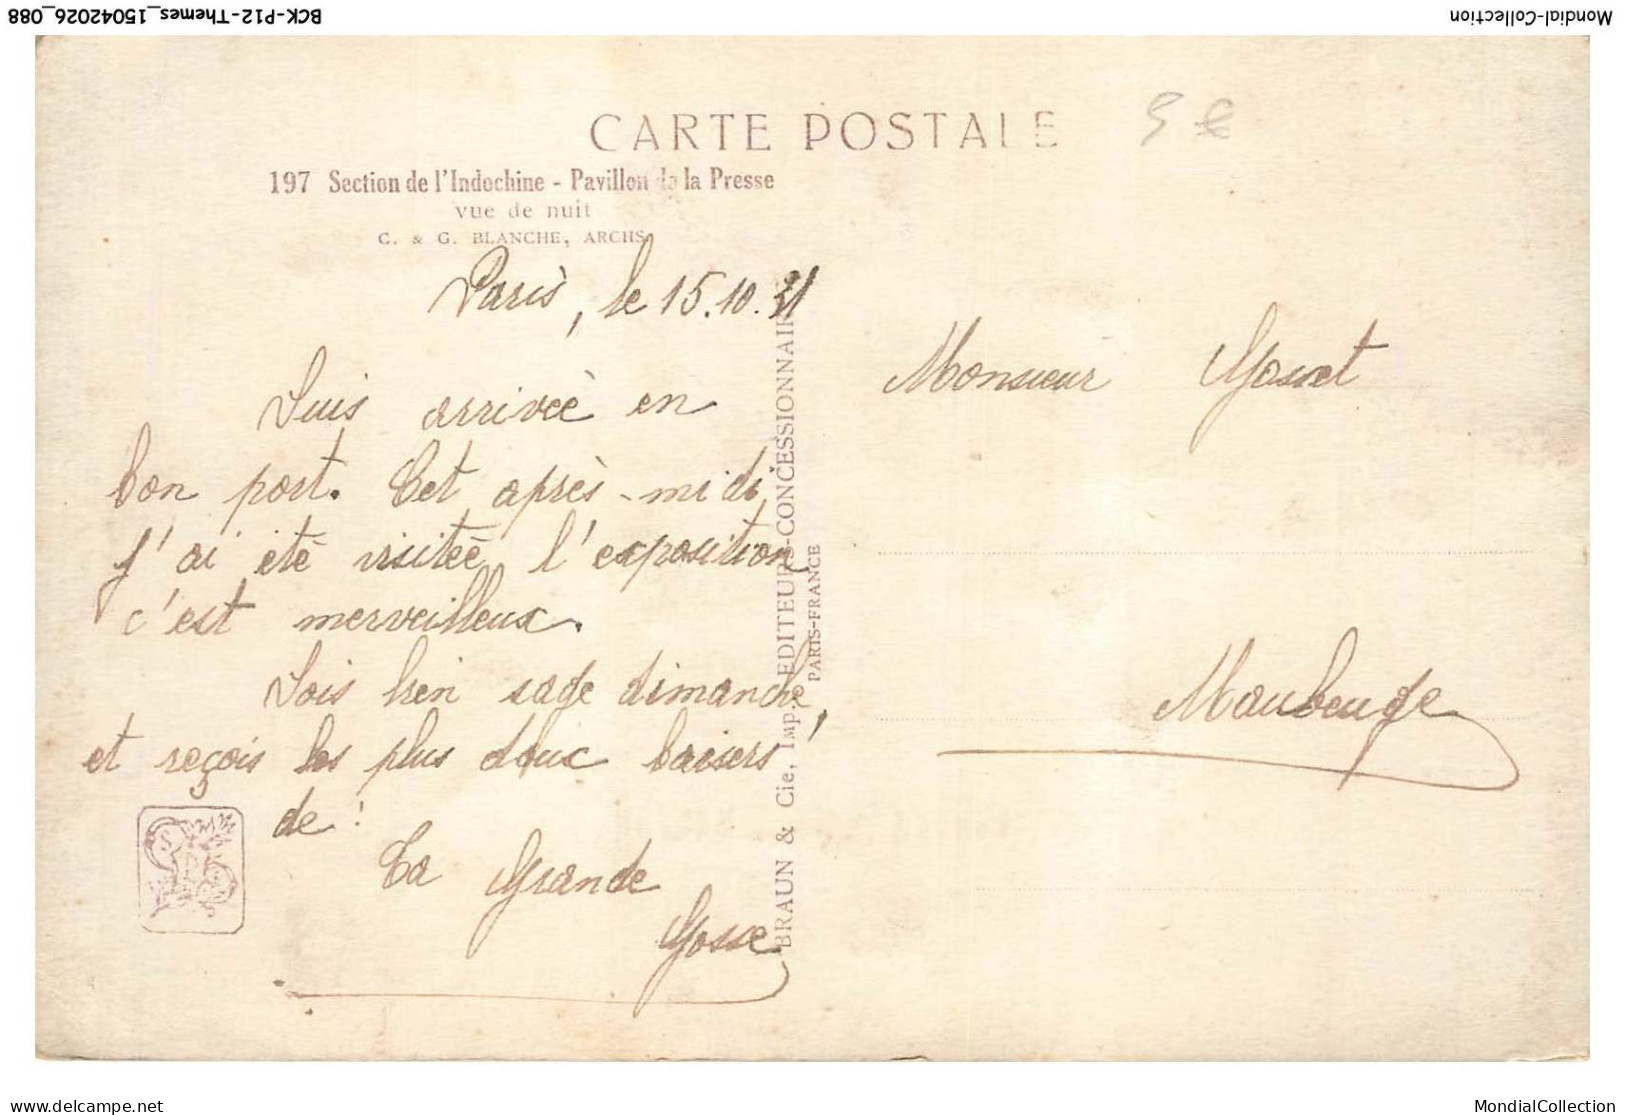 BCK-P12-Themes_15042026_088
Mondial-Collection
CARTE POSTALE
5 €
197 Section de l'Indochine - Pavillon de la Presse
vue de nuit
C. & G. BLANCHE, ARCHS
Paris, le 15.10.31
Suis arrivée en
bon port. Cet après-midi
j'ai été visitée l'exposition
c'est merveilleux.
Sois bien sage dimanche,
et reçois les plus doux baisers
de :
Ta Grande
Gosse
BRAUN & Cie, Imp., EDITEURS-CONCESSIONNAIRE
PARIS-FRANCE
Monsieur
Maubeuge
www.delcampe.net
MondialCollection